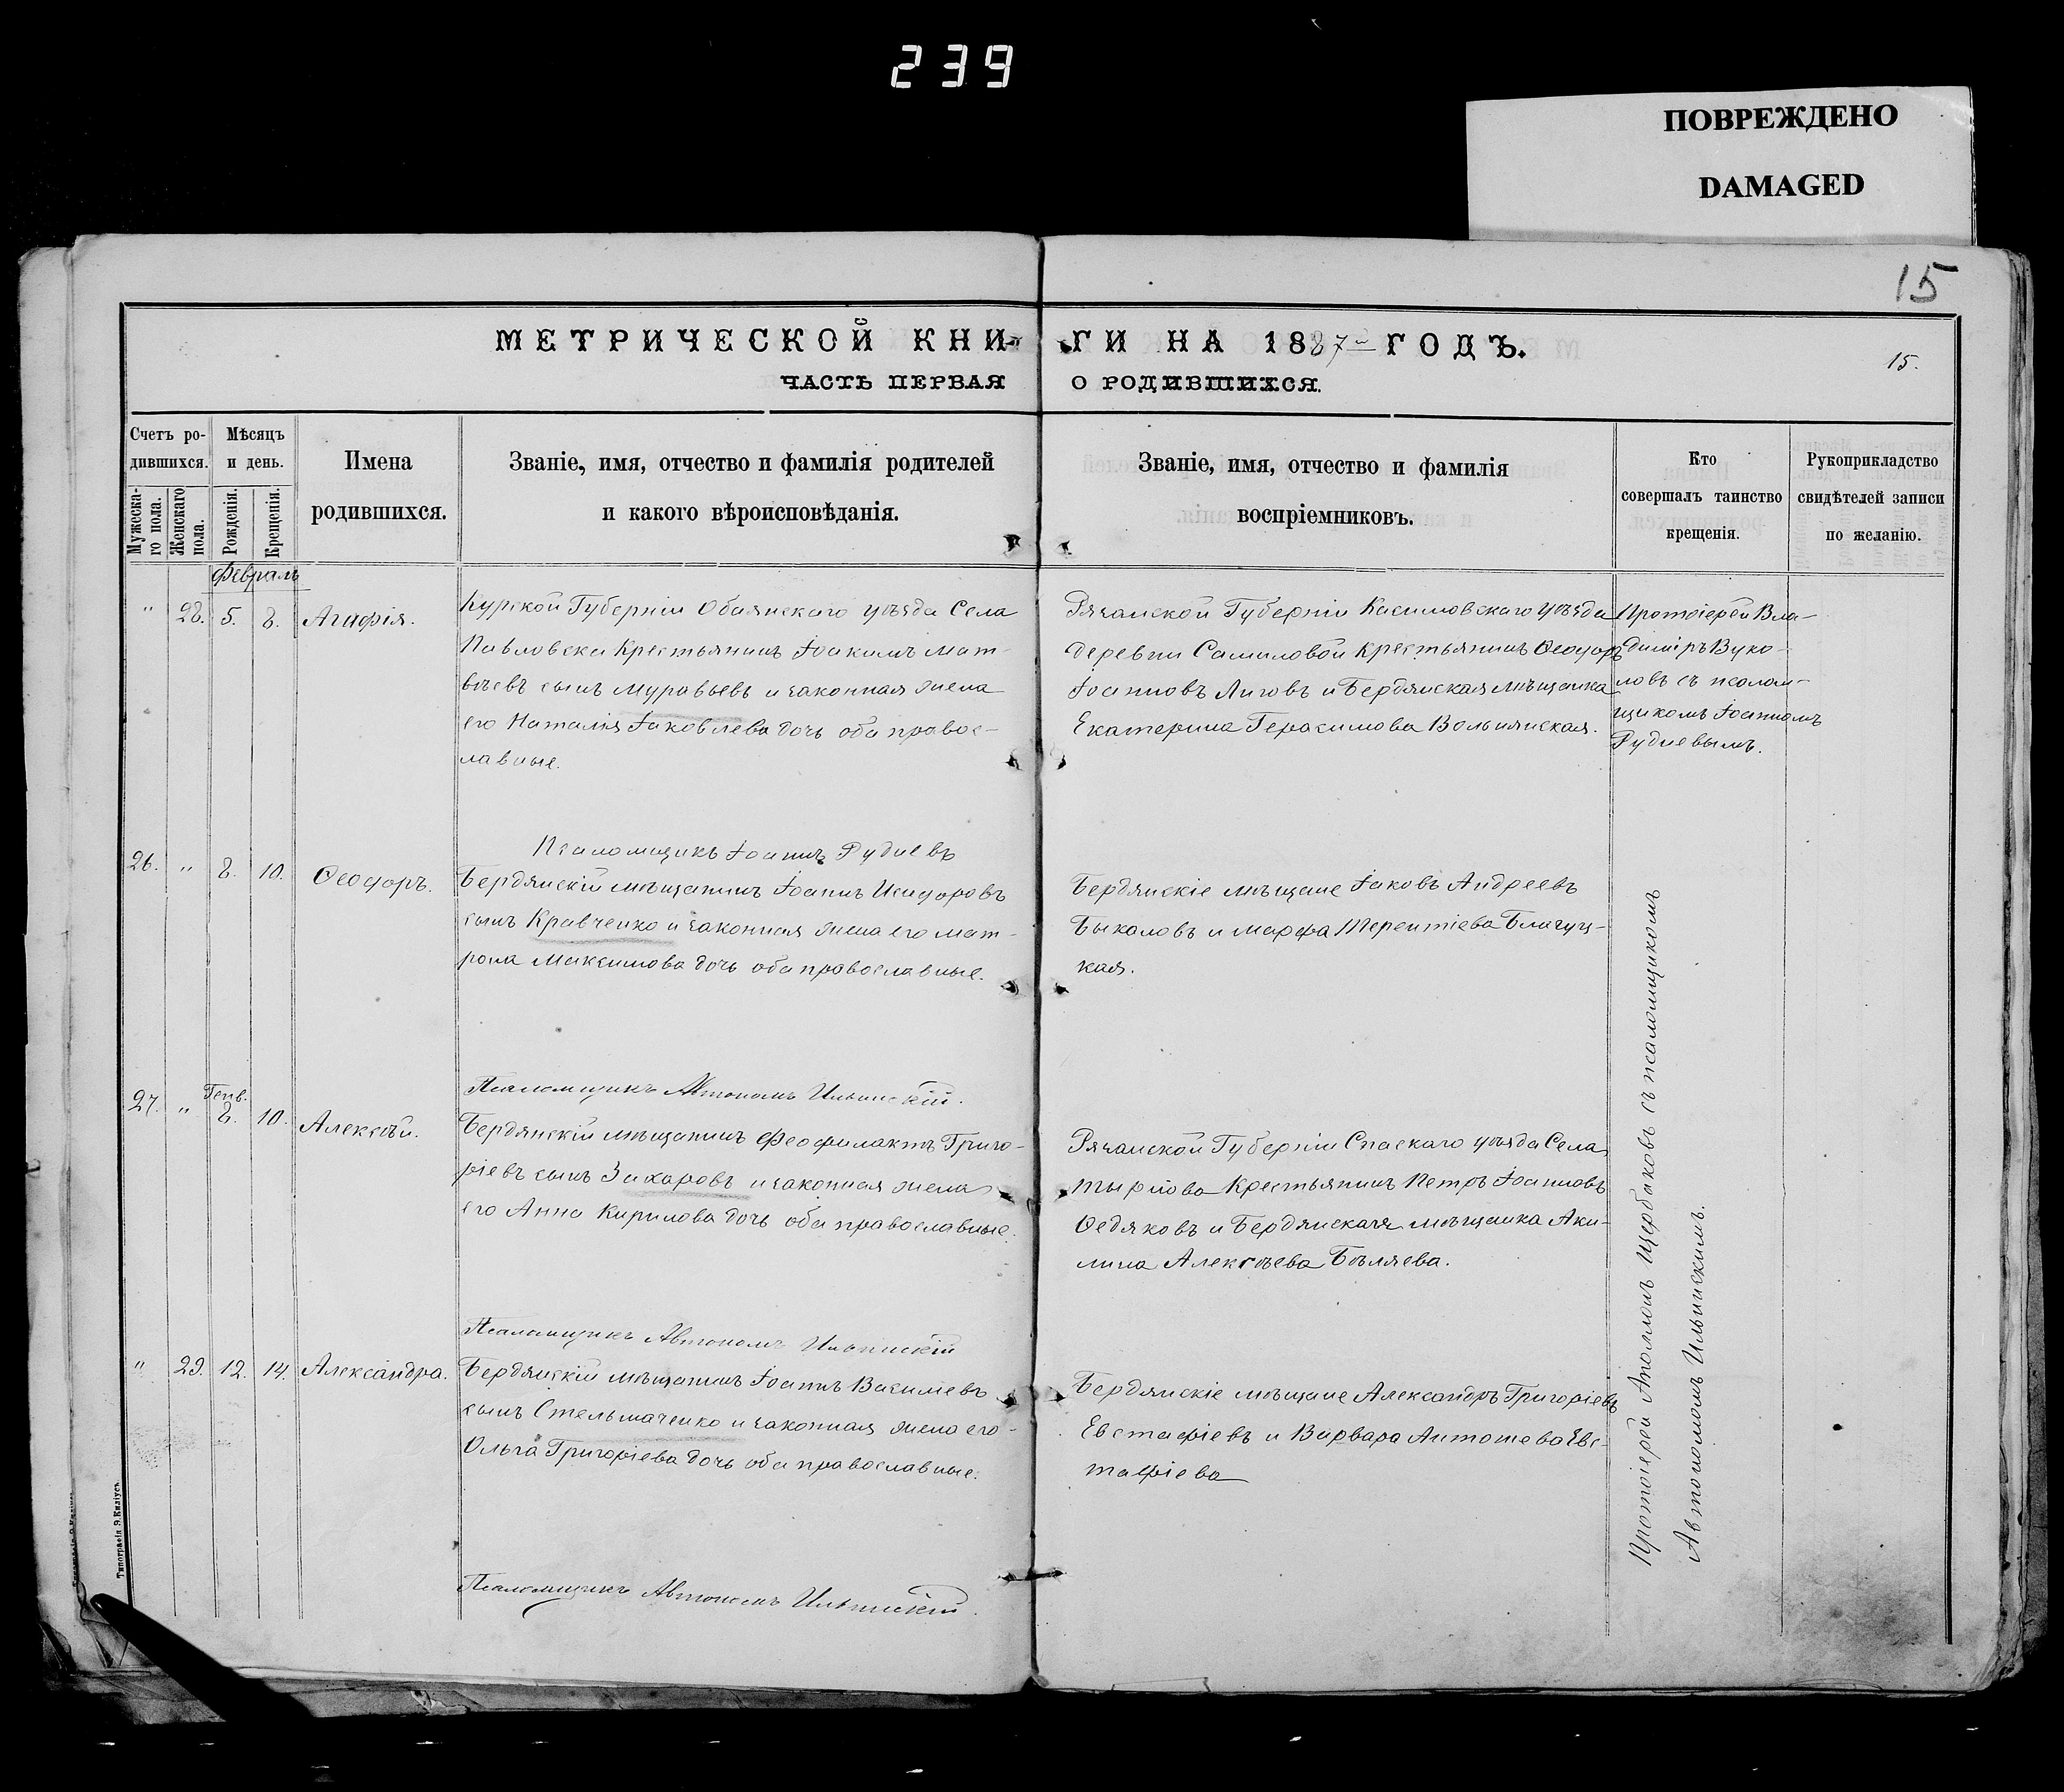 239
ПОВРЕЖДЕНО
DAMAGED
15
МЕТРИЧЕСКОЙ КНИ- ГИ НА 1887й ГОДЪ.
15.
ЧАСТЬ ПЕРВАЯ О РОДИВШИХСЯ.
Счетъ ро-
дившихся.
Мужеска-
го пола.
Женскаго
пола.
Мѣсяцъ
и день.
Рожденія.
Крещенія.
Имена
родившихся.
Званіе, имя, отчество и фамилія родителей
и какого вѣроисповѣданія.
Званіе, имя, отчество и фамилія
воспріемниковъ.
Кто
совершалъ таинство
крещенія.
Рукоприкладство
свидѣтелей записи
по желанію.
Февраль
" 28. 5. 8. Агафія.
Курской Губерніи Обоянскаго уѣзда Села
Павловска Крестьянинъ Іоакимъ Мат-
вѣевъ сынъ Муравьевъ и законная жена
его Наталія Іаковлева дочь оба правос-
лавные.
Рязанской Губерніи Касимовскаго уѣзда
деревни Самиловой Крестьянинъ Ѳеодоръ
Іоанновъ Лиговъ и Бердянская мѣщанка
Екатерина Герасимова Вольнянская.
Протоіерей Вла-
диміръ Вуко-
ловъ съ псалом-
щикомъ Іоанномъ
Рудневымъ.
Псаломщикъ Іоаннъ Рудневъ
26. " 8. 10. Ѳеодоръ.
Бердянскій мѣщанинъ Іоаннъ Исидоровъ
сынъ Кравченко и законная жена его Мат-
рона Максимова дочь оба православные.
Бердянскіе мѣщане Іаковъ Андреевъ
Быкаловъ и Марфа Терентіева Благуц-
кая.
Псаломщикъ Автономъ Ильинскій.
27. " Генв. 8. 10. Алексѣй.
Бердянскій мѣщанинъ Феофилактъ Григо-
ріевъ сынъ Захаровъ и законная жена
его Анна Кирилова дочь оба православные.
Рязанской Губерніи Спаскаго уѣзда Села
Тырнова Крестьянинъ Петръ Іоанновъ
Ѳедяковъ и Бердянская мѣщанка Аки-
лина Алексѣева Бѣляева.
Псаломщикъ Автономъ Ильинскій
" 29. 12. 14. Александра.
Бердянскій мѣщанинъ Іоаннъ Василіевъ
сынъ Стельмаченко и законная жена его
Ольга Григоріева дочь оба православные.
Бердянскіе мѣщане Александръ Григоріевъ
Евстафіевъ и Варвара Антонева Евс-
тафіева
Протоіерей Аполлонъ Щербаковъ съ псаломщикомъ
Автономомъ Ильинскимъ.
Псаломщикъ Автономъ Ильинскій.
Типографія Э.Киліусъ